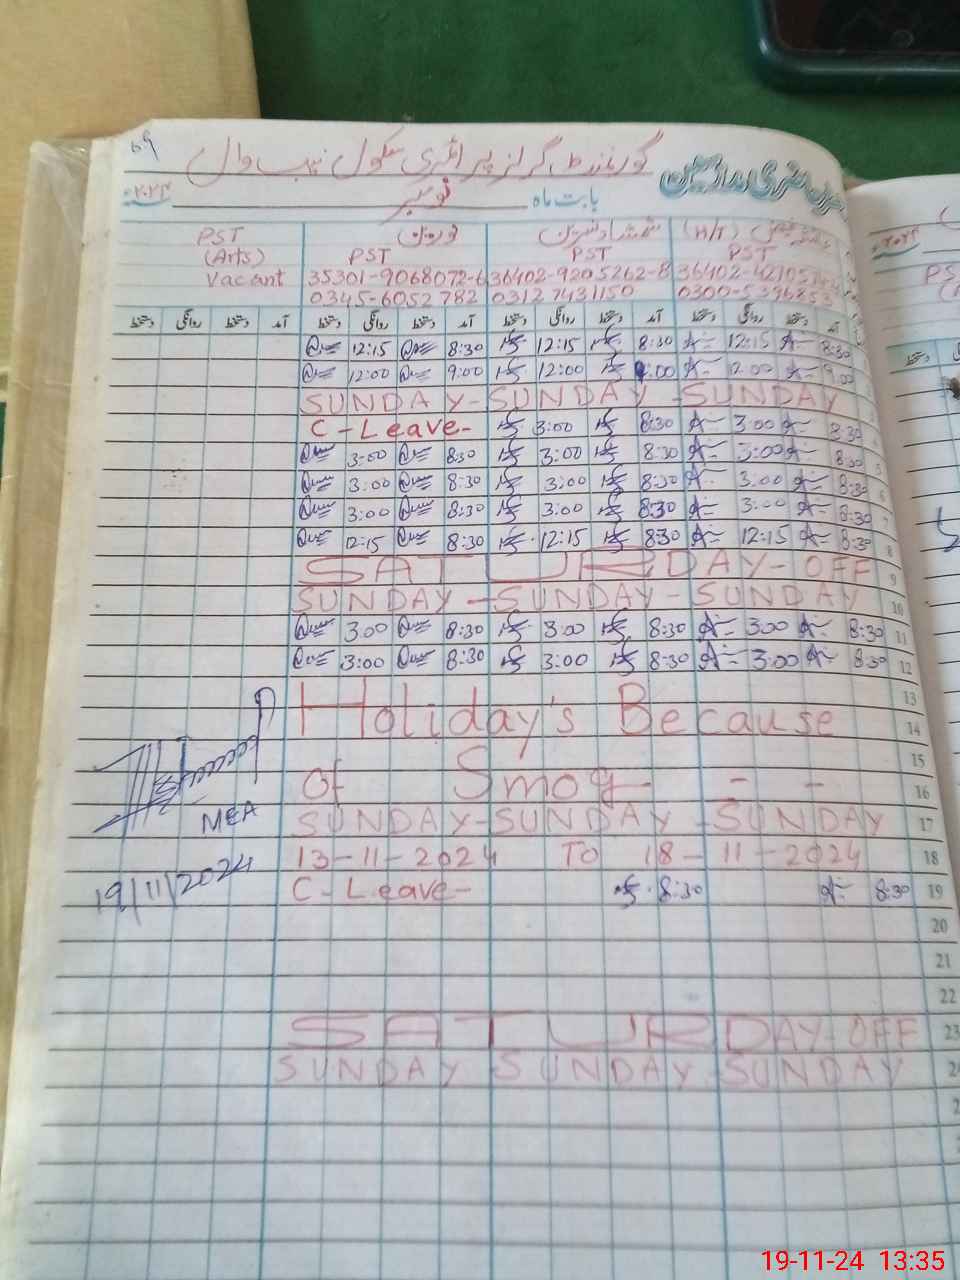 69
گورنمنٹ گرلز پرائمری سکول نیب وال
بابت ماہ نومبر
۲۰۲۴ء
PST (Arts) Vacant
PST 35301-9068072-6 0345-6052782
شمشاد نسرین PST 36402-9205262-8 03127431150
(H/T) PST 36402-4210
0300-5396853
دستخط روانگی دستخط آمد دستخط روانگی دستخط آمد دستخط روانگی دستخط آمد دستخط روانگی دستخط آمد
12:15 8:30 12:15 8:30 12:15 8:30
12:00 9:00 12:00 9:00 2.00 9:00
SUNDAY-SUNDAY-SUNDAY
C-Leave- 3:00 8:30 3:00 8:30
3:00 8:30 3:00 8:30 3:00 8:30 5
3:00 8:30 3:00 8:30 3:00 8:30 6
3:00 8:30 3:00 8:30 3:00 8:30 7
12:15 8:30 12:15 8:30 12:15 8:30 8
SATURDAY-OFF 9
SUNDAY-SUNDAY-SUNDAY 10
3:00 8:30 3:00 8:30 3:00 8:30 11
3:00 8:30 3:00 8:30 3:00 8:30 12
13
Holiday's Because 14
15
of Smog - - - 16
MEA
SUNDAY-SUNDAY-SUNDAY 17
13-11-2024 To 18-11-2024 18
19/11/2024
C-Leave- 8:30 8:30 19
20
21
22
SATURDAY-OFF 23
SUNDAY-SUNDAY-SUNDAY
19-11-24 13:35